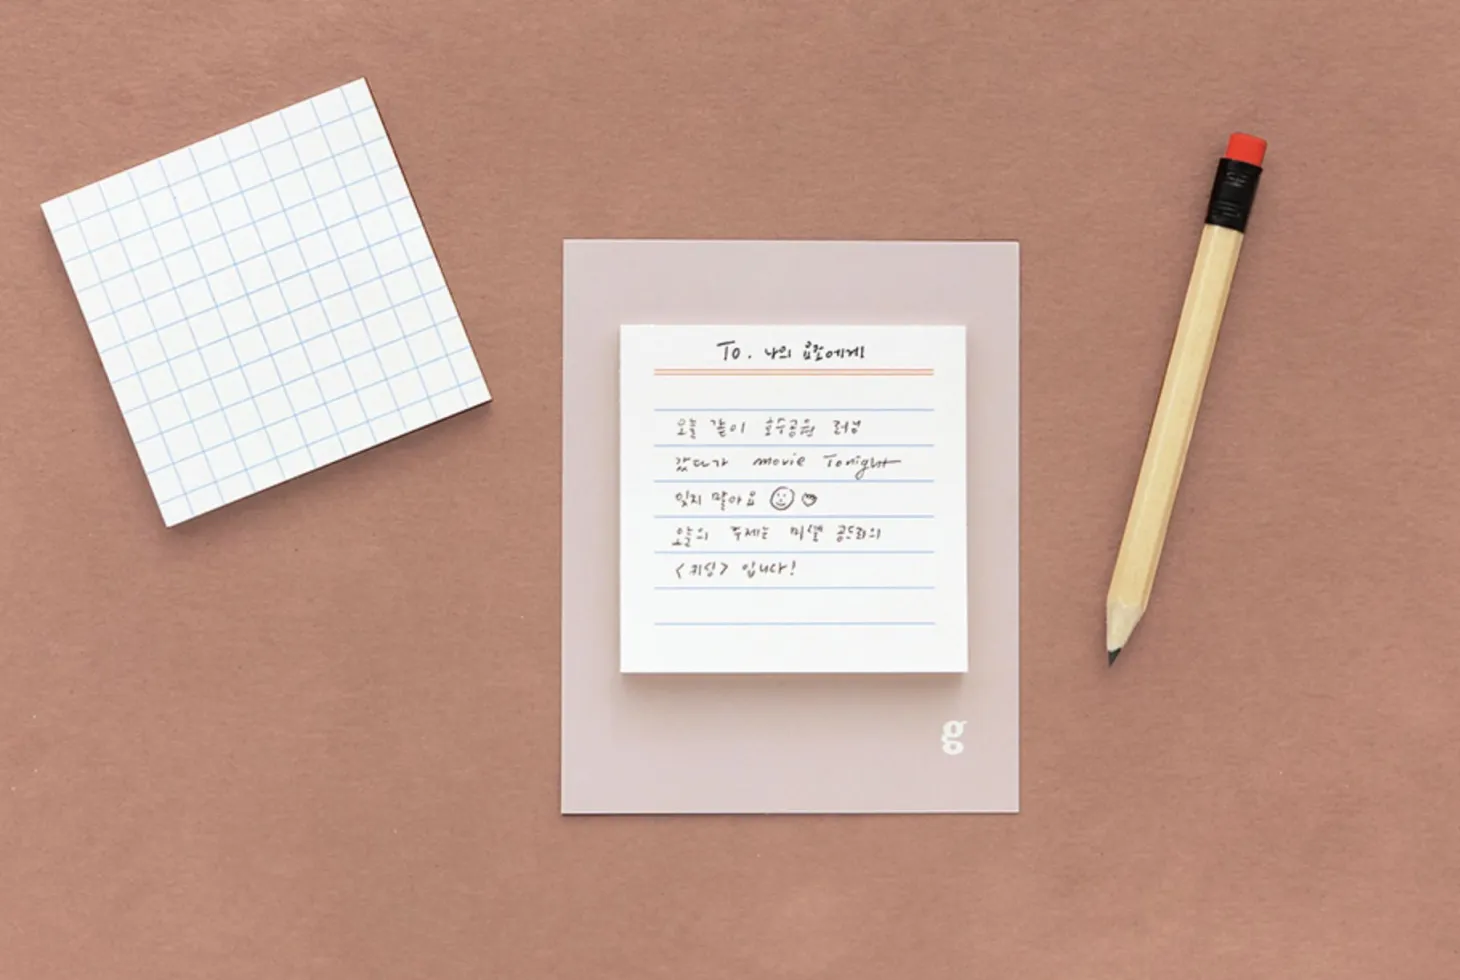 To. 나의 요정에게
오늘 같이 호수공원 러닝
갔다가 movie Tonight
잊지 말아요
오늘의 주제는 미셸 공드리의
<무드> 입니다!
g